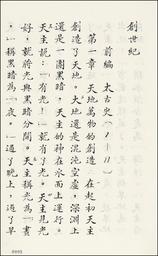 創世紀
前編 太古史(1—11)
第一章 天地萬物的創造 在起初天主
創造了天地。大地還是混沌空虛,深淵上
還是一團黑暗,天主的神在水面上運行。
天主說:「有光!」就有了光。天主見光
好,就將光與黑暗分開。天主稱光為「晝
」,稱黑暗為「夜」。過了晚上,過了早